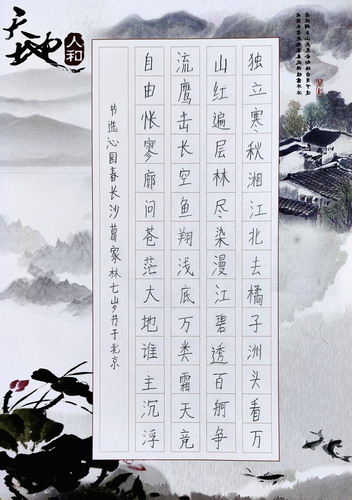 天地
人和
独立寒秋湘江北去橘子洲头看万
山红遍层林尽染漫江碧透百舸争
流鹰击长空鱼翔浅底万类霜天竞
自由怅寥廓问苍茫大地谁主沉浮
节选沁园春长沙葛家林七岁书于北京